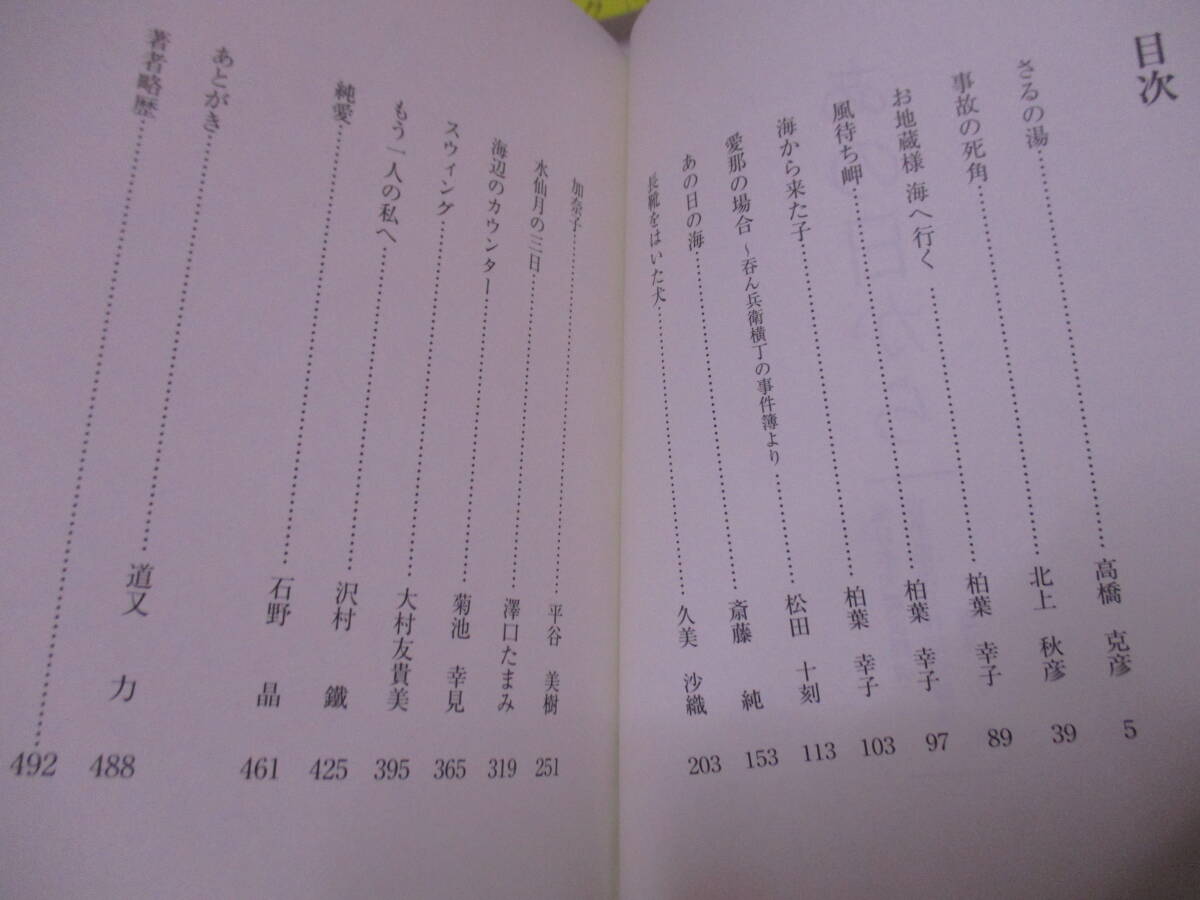 目次
さるの湯……高橋 克彦 5
事故の死角……北上 秋彦 39
お地蔵様 海へ行く……柏葉 幸子 89
風待ち岬……柏葉 幸子 97
海から来た子……柏葉 幸子 103
愛那の場合 ～呑ん兵衛横丁の事件簿より……松田 十刻 113
あの日の海……斎藤 純 153
長靴をはいた犬……久美 沙織 203
加奈子……平谷 美樹 251
水仙月の三日……澤口たまみ 319
海辺のカウンター……菊池 幸見 365
スウィング……大村友貴美 395
もう一人の私へ……沢村 鐵 425
純愛……石野 晶 461
あとがき……道又 力 488
著者略歴……492